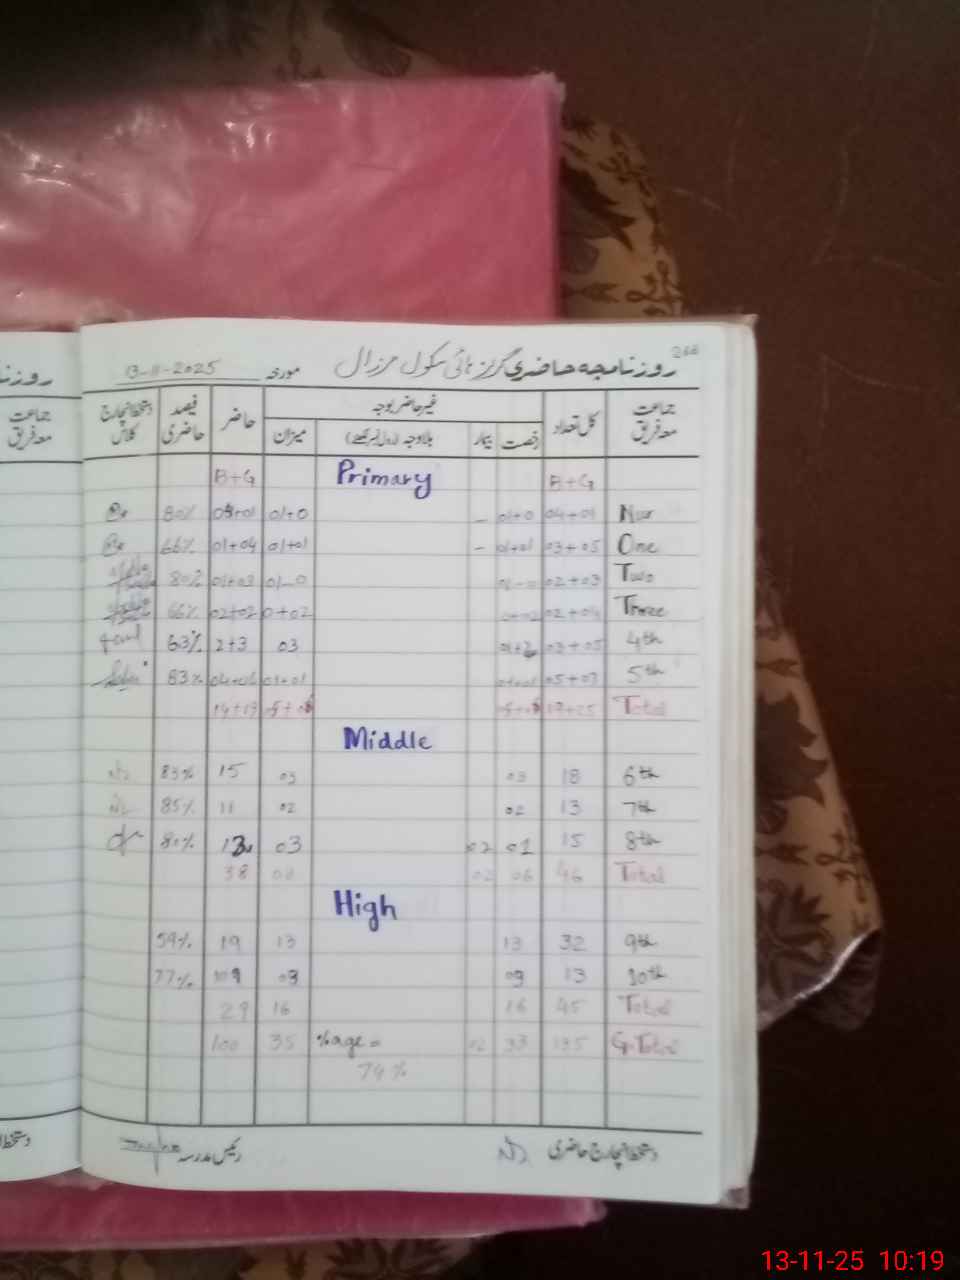 266
روزنامچہ حاضری گرلز ہائی سکول مرزال مورخہ 13-11-2025
جماعت معہ فریق کل تعداد غیر حاضر بوجہ حاضر فیصد حاضری دستخط انچارج کلاس
رخصت بیمار بلاوجہ (رول نمبر لکھئے) میزان
B+G Primary B+G
Nur 04+01 01+0 - 01+0 01 80%
One 03+05 01+01 - 01+01 01+04 66%
Two 02+03 01-0 01+03 80%
Three 02+04 0+02 02+02 66%
4th 03+05 01+2 03 2+3 63%
5th 05+07 01+01 01+01 04+06 83%
Total 19+25 05+06 05+06 14+19
Middle
6th 18 03 03 15 83%
7th 13 02 02 11 85%
8th 15 01 02 03 80%
Total 46 06 02 38
High
9th 32 13 13 19 59%
10th 13 03 03 77%
Total 45 16 16 29
G.Total 135 33 02 %age = 35 100
74%
دستخط انچارج حاضری رئیس مدرسہ
روزنا
جماعت
معہ فریق
دستخط
13-11-25 10:19